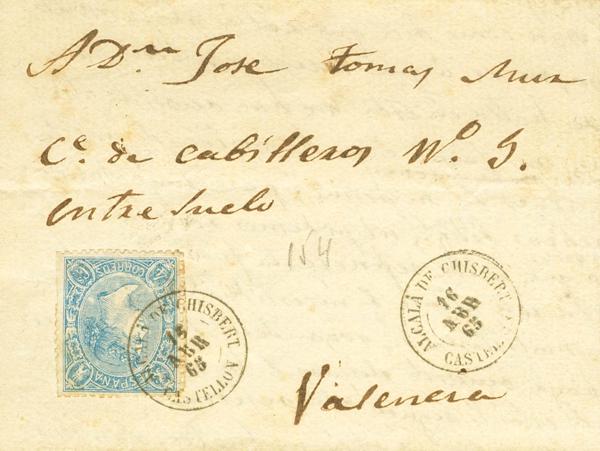 A Dn Jose Tomas Muz
Ce. de cabilleros No. 5.
entre suelo
154
CORREOS
ESPAÑA
ALCALÁ DE CHISBERT
ABR
65
CASTELLON
ALCALÁ DE CHISBERT
16
ABR
65
CASTEL
Valencia